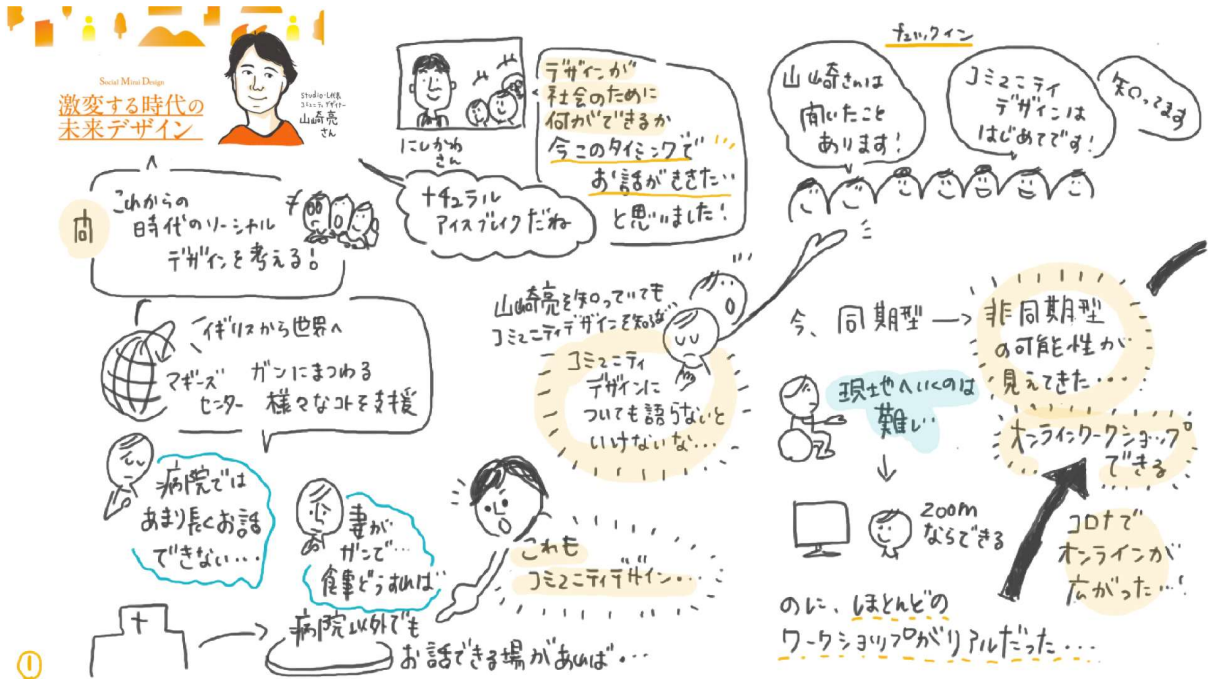 Social Mirai Design
激変する時代の
未来デザイン
studio-L代表
コミュニティデザイナー
山崎亮
さん
にしかわ
さん
デザインが
社会のために
何ができるか
今このタイミングで
お話がききたい
と思いました!
ナチュラル
アイスブレイクだね
チェックイン
山崎さんは
聞いたこと
あります!
コミュニティ
デザインは
はじめてです!
知ってます
問
これからの
時代のソーシャル
デザインを考える!
イギリスから世界へ
マギーズ
センター
ガンにまつわる
様々なコトを支援
病院では
あまり長くお話
できない・・・
妻が
ガンで・・・
食事どうすれば
病院以外でも
お話できる場があれば・・・
山崎亮を知っていても
コミュニティデザインを知らない
コミュニティ
デザインに
ついても語らないと
いけないな・・・
これも
コミュニティデザイン・・・
今、同期型→非同期型
の可能性が
見えてきた・・・
現地へいくのは
難しい
オンラインワークショップ
できる
zoom
ならできる
コロナで
オンラインが
広がった・・・!
のに、ほとんどの
ワークショップがリアルだった・・・
①